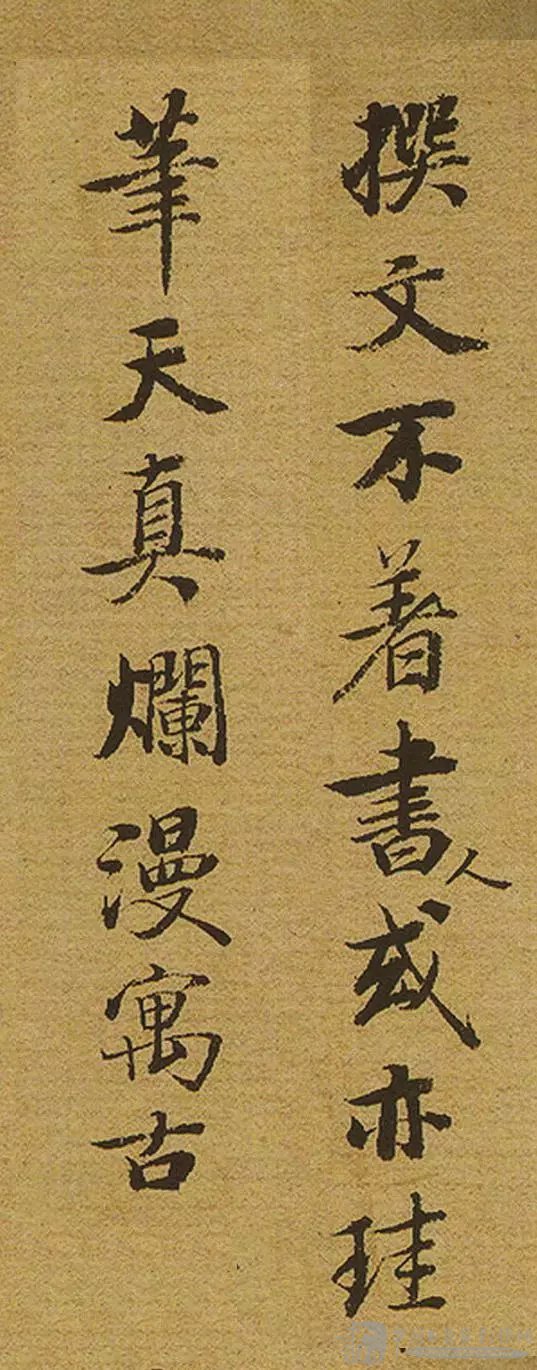 撰文不着書人或亦珪
筆天真爛漫寓古